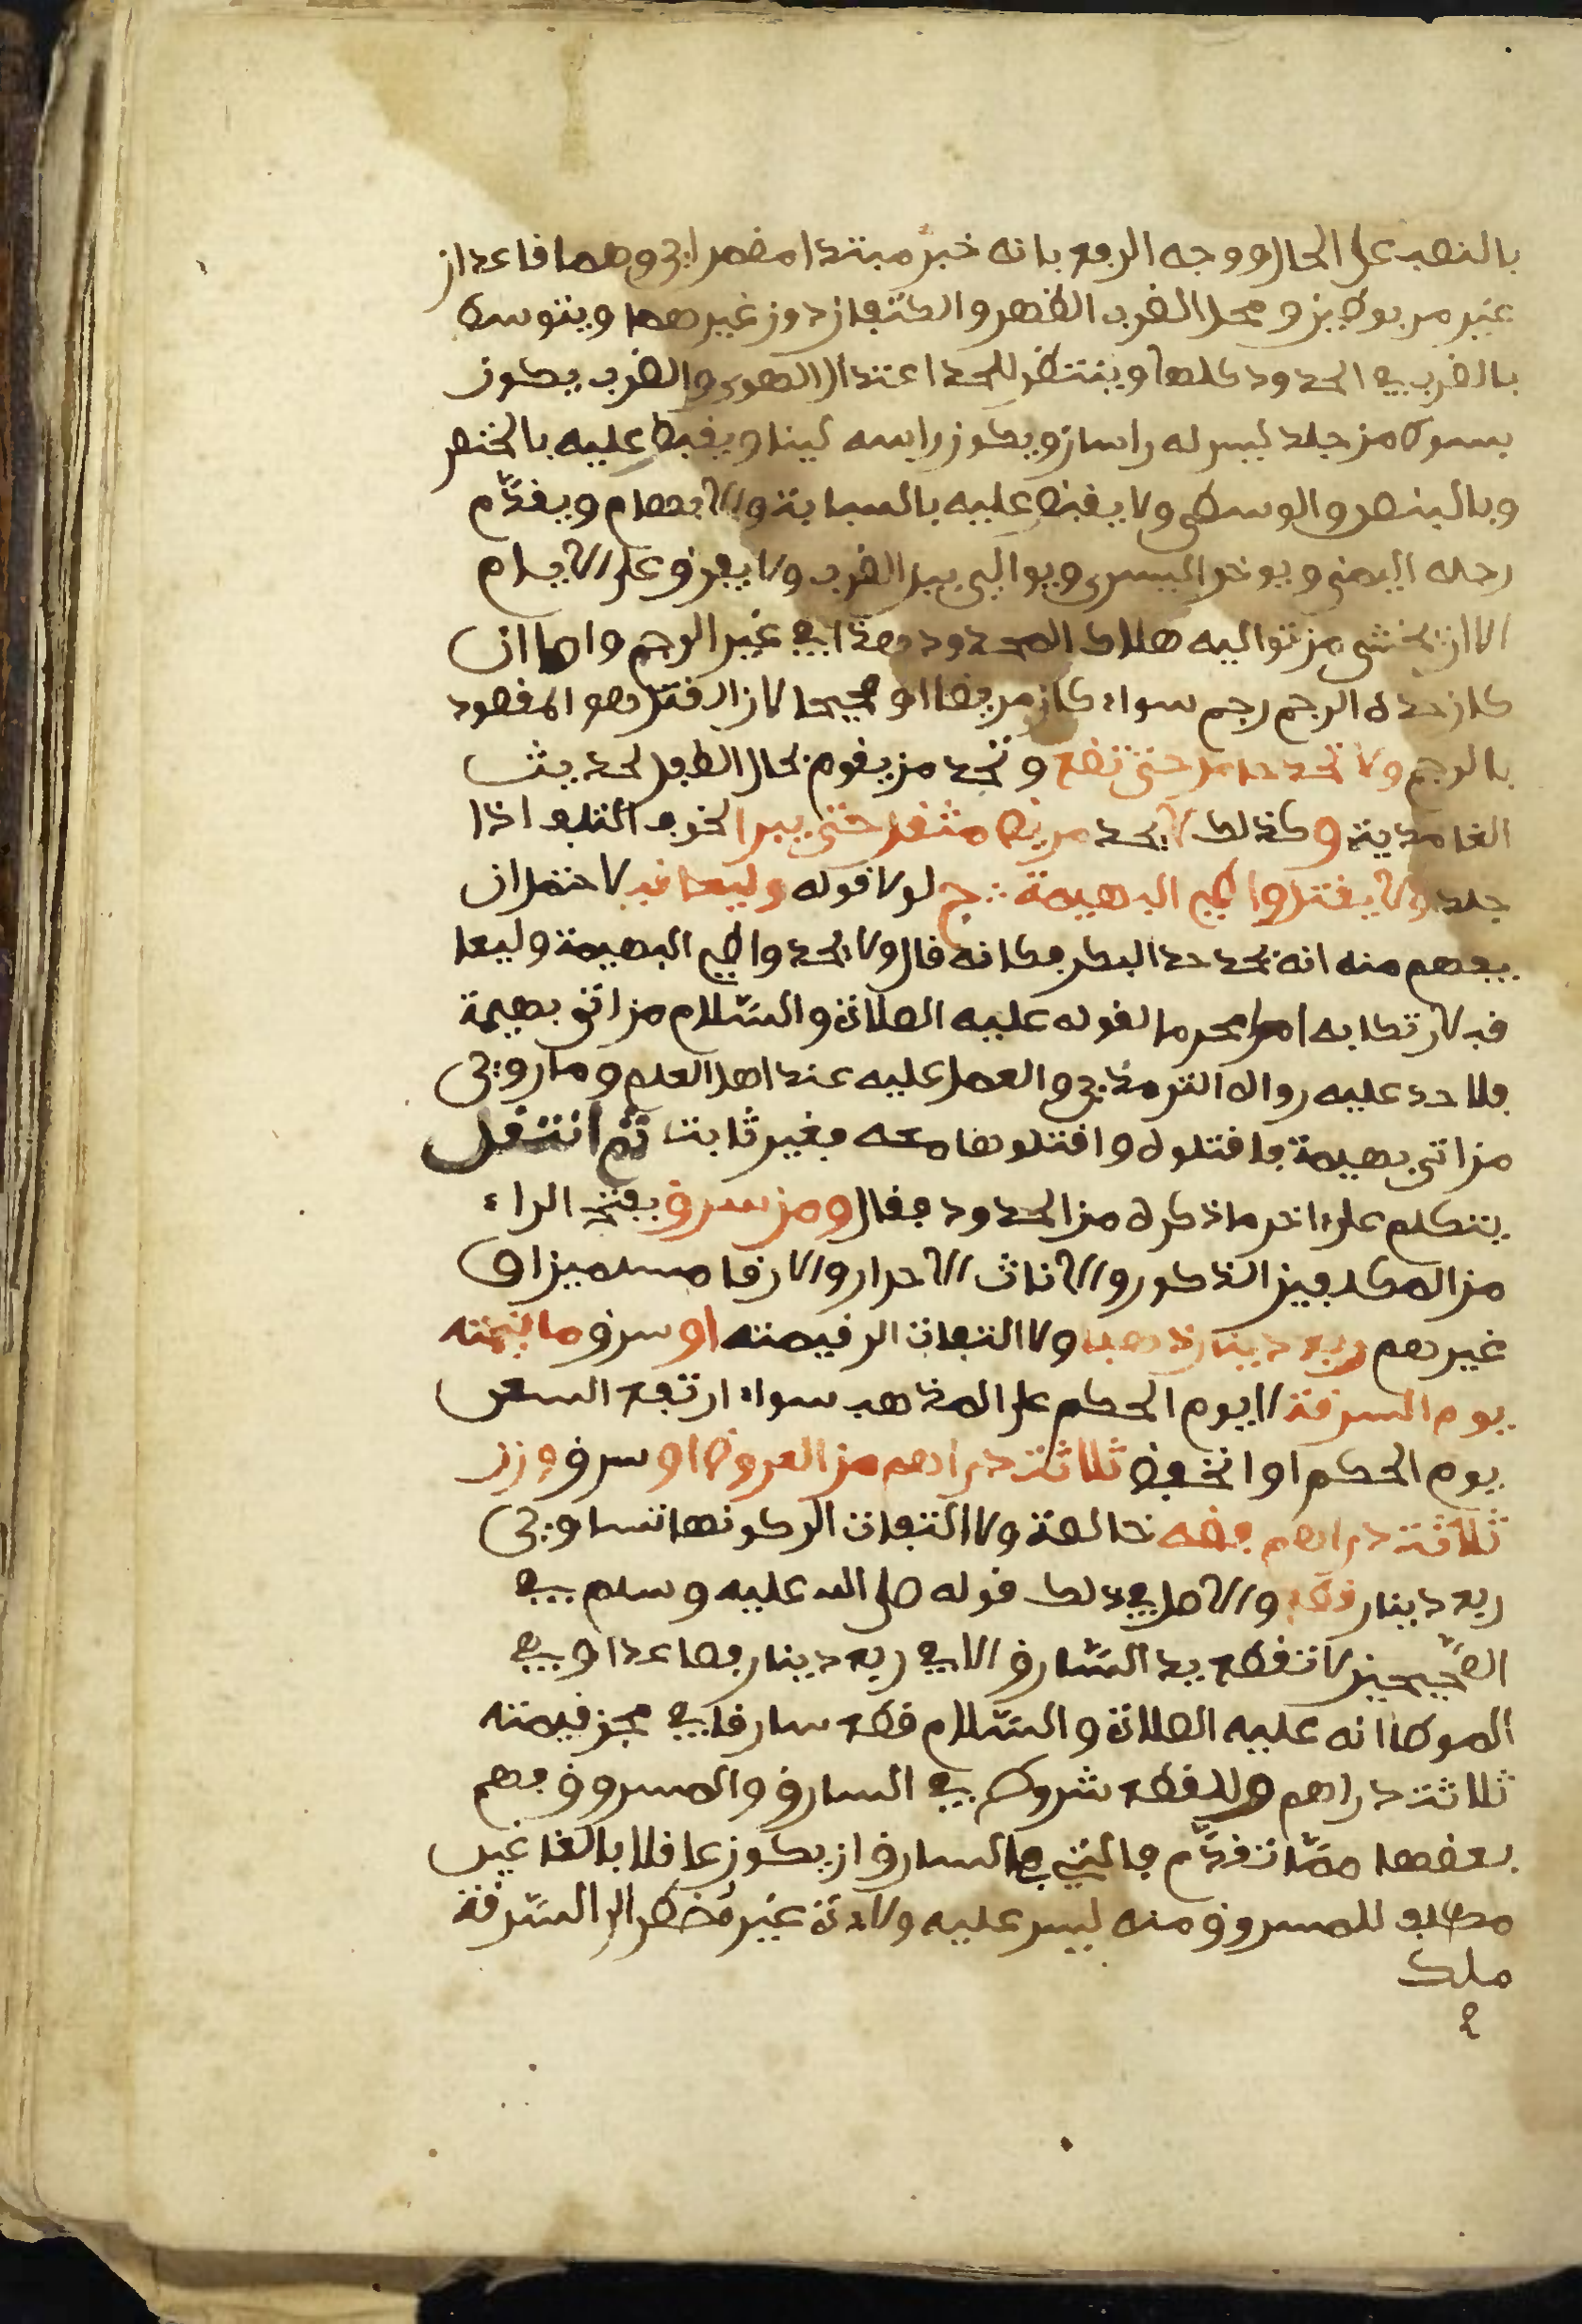 بالنصب على الحال ووجه الرفع بانه خبر مبتدا مضمر اي وهما قاعدان
غير مربوطين ومحل الضرب الظهر والكتفان دون غيرهما ويتوسط
بالضرب في الحدود كلها وينتظر للحد اعتدال الهوى والضرب يكون
بسوط من جلد ليس له راسان ويكون راسه لينا ويقبض عليه بالخنصر
وبالبنصر والوسطى ولا يقبض عليه بالسبابة والابهام ويقدّم
رجله اليمنى ويوخر اليسرى ويوالي بين الضرب ولا يفرق على الايام
الا ان يخشى من تواليه هلاك المحدود وهذا في غير الرجم واما ان
كان حده الرجم رجم سواء كان مريضا او صحيحا لان القتل هو المقصود
بالرجم ولا تحد حامل حتى تضع وتجد من يقوم بحال الطفل لحديث
الغامدية وكذلك لا يحد مريض مثقل حتى يبرا لخوف التلف اذا
جلد ولا يقتل واطي البهيمة ج لولا قوله وليعاقب لاحتمل ان
يفهم منه انه يحد حد البكر فكانه قال ولا يحد واطي البهيمة وليعا
قب لارتكابه امرا محرما لقوله عليه الصلاة والسّلام من اتى بهيمة
فلا حد عليه رواه الترمذي والعمل عليه عند اهل العلم وما روي
من اتى بهيمة فاقتلوه واقتلوها معه فغير ثابت ثم انتقل
يتكلم على اخر ما ذكره من الحدود فقال ومن سرق بفتح الراء
من المكلفين الذكور والاناث الاحرار والارقا مسلمين او
غيرهم ربع دينار ذهبا ولا التفات الى قيمته او سرق ما قيمته
يوم السرقة لا يوم الحكم على المذهب سواء ارتفع السعر
يوم الحكم او انخفض ثلاثة دراهم من العروض او سرق وزن
ثلاثة دراهم فضه خالصة ولا التفات الى كونها تساوي
ربع دينار قطع والاصل في ذلك قوله صلى الله عليه وسلم في
الصّحيحين لا تقطع يد السّارق الا في ربع دينار فصاعدا وفي
الموطا انه عليه الصلاة والسّلام قطع سارقا في مجن قيمته
ثلاثة دراهم وللقطع شروط في السارق والمسروق فهم
بعضها ممّا تقدّم فالتي في السارق ان يكون عاقلا بالغا غير
ملك للمسروق منه ليس عليه ولادة غير مُضطر الى السّرقة
ملك